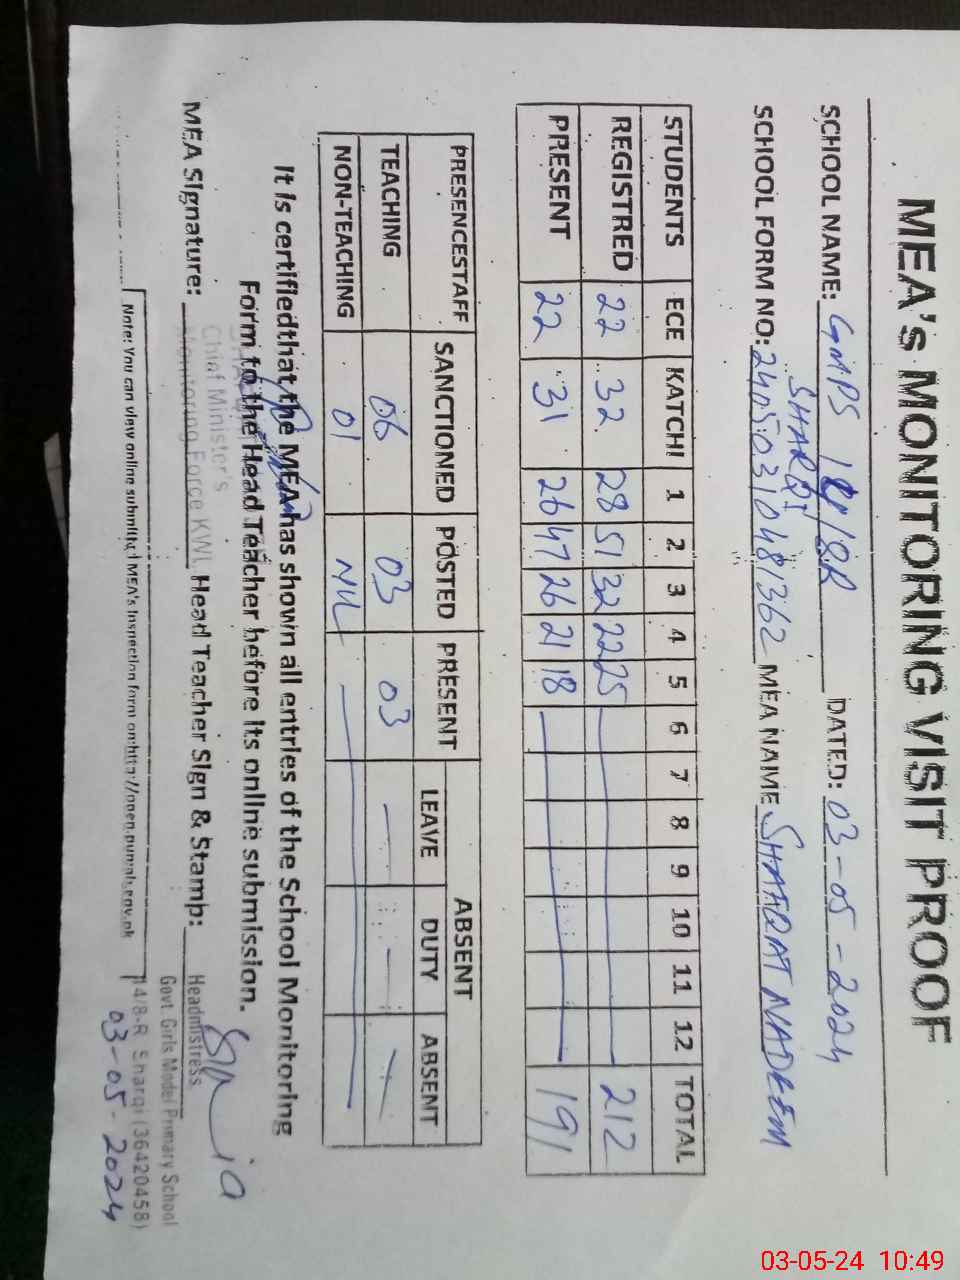 MEA's MONITORING VISIT PROOF
SCHOOL NAME: GMPS /8R SHARQI DATED: 03-05-2024
SCHOOL FORM NO: 24050310481362 MEA NAME SHAFQAT NADEEM
STUDENTS ECE KATCHI 1 2 3 4 5 6 7 8 9 10 11 12 TOTAL
REGISTRED 22 32 28 51 32 22 25 212
PRESENT 22 31 26 47 26 21 18 191
PRESENCESTAFF SANCTIONED POSTED PRESENT ABSENT
LEAVE DUTY ABSENT
TEACHING 06 03 03 — — —
NON-TEACHING 01 NIL
It is certifiedthat the MEA has shown all entries of the School Monitoring
Form to the Head Teacher before its online submission.
MEA Signature: Head Teacher Sign & Stamp:
Chief Minister's
Monitoring Force KWL
Headmistress
Govt. Girls Model Primary School
14/8-R Sharqi (36420458)
03-05-2024
Note: You can view online submitted MEA's Inspection form on:http://open.punjab.gov.pk
03-05-24 10:49